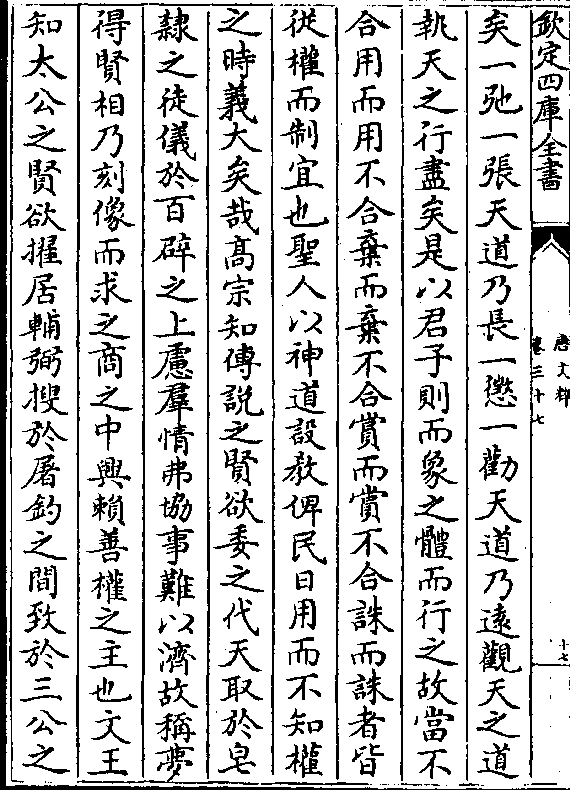 欽定四庫全書
唐文粹
卷三十七
十七
矣一弛一張天道乃長一懲一勸天道乃遠觀天之道
執天之行盡矣是以君子則而象之體而行之故當不
合用而用不合棄而棄不合賞而賞不合誅而誅者皆
從權而制宜也聖人以神道設教俾民日用而不知權
之時義大矣哉高宗知傅說之賢欲委之代天取於皂
隸之徒儀於百辟之上慮羣情弗協事難以濟故稱夢
得賢相乃刻像而求之商之中興賴善權之主也文王
知太公之賢欲擢居輔弼搜於屠釣之間致於三公之